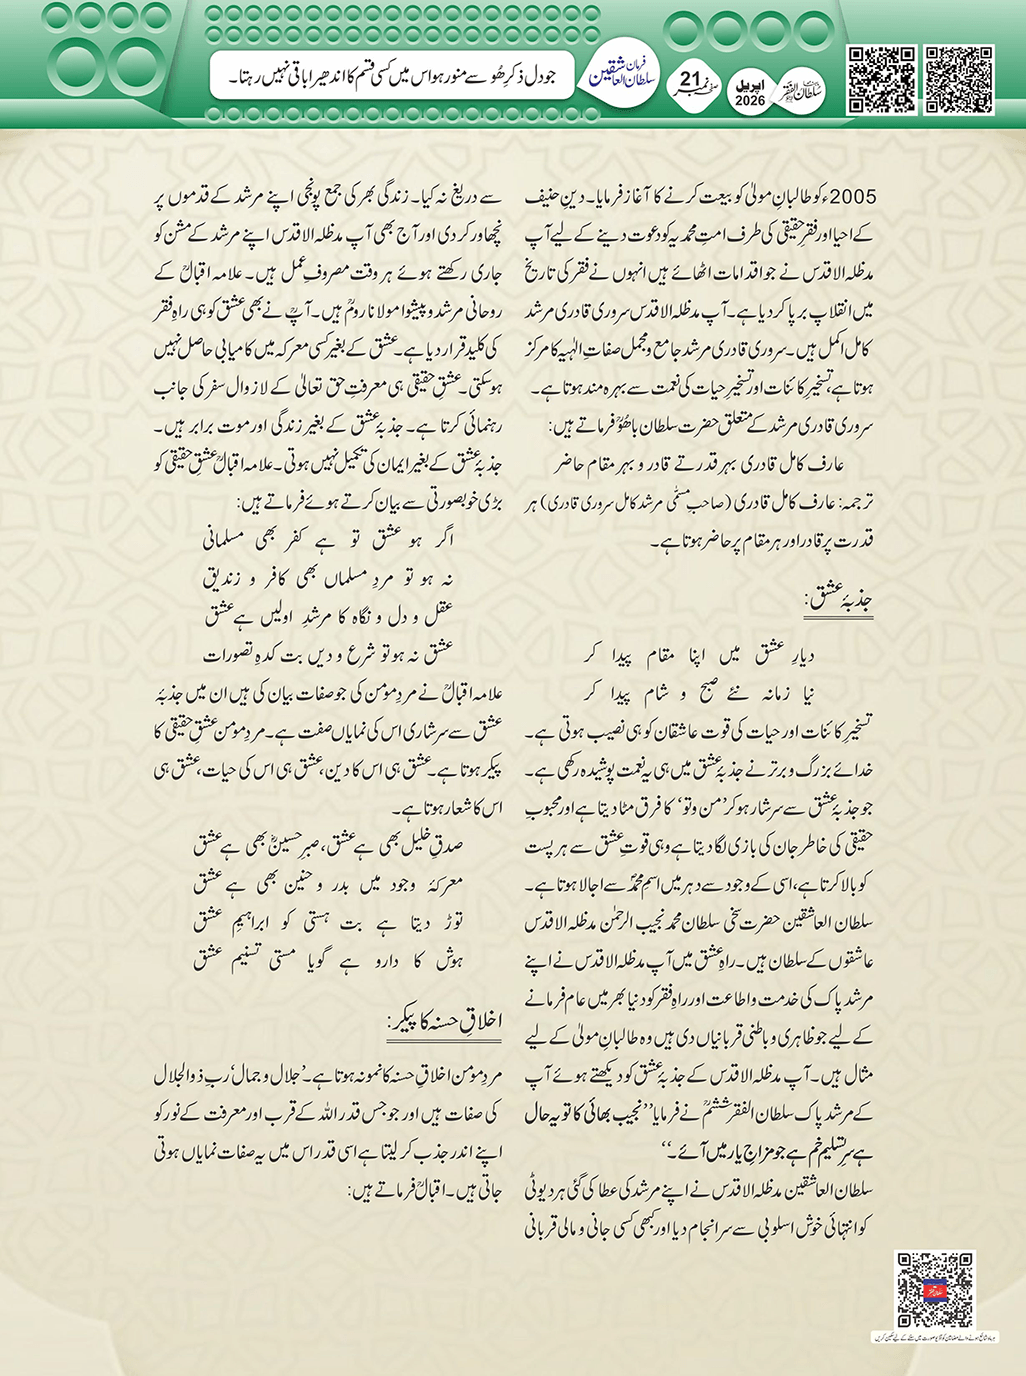 ماہنامہ سلطان الفقر لاہور
اپریل 2026
صفحہ نمبر 21
فرمان سلطان العاشقین
جو دل ذکرِ ھُو سے منور ہو اس میں کسی قسم کا اندھیرا باقی نہیں رہتا۔
2005ء کو طالبانِ مولیٰ کو بیعت کرنے کا آغاز فرمایا۔ دینِ حنیف
کے احیا اور فقرِ حقیقی کی طرف امتِ محمدیہ کو دعوت دینے کے لیے آپ
مدظلہ الاقدس نے جو اقدامات اٹھائے ہیں انہوں نے فقر کی تاریخ
میں انقلاب برپا کر دیا ہے۔ آپ مدظلہ الاقدس سروری قادری مرشد
کامل اکمل ہیں۔ سروری قادری مرشد جامع و مجمل صفاتِ الٰہیہ کا مرکز
ہوتا ہے، تسخیرِ کائنات اور تسخیرِ حیات کی نعمت سے بہرہ مند ہوتا ہے۔
سروری قادری مرشد کے متعلق حضرت سلطان باھُوؒ فرماتے ہیں:
عارف کامل قادری بہر قدرتے قادر و بہر مقام حاضر
ترجمہ: عارف کامل قادری (صاحبِ مسمّٰی مرشد کامل سروری قادری) ہر
قدرت پر قادر اور ہر مقام پر حاضر ہوتا ہے۔
جذبۂ عشق:
دیارِ عشق میں اپنا مقام پیدا کر
نیا زمانہ نئے صبح و شام پیدا کر
تسخیرِ کائنات اور حیات کی قوت عاشقان کو ہی نصیب ہوتی ہے۔
خدائے بزرگ و برتر نے جذبۂ عشق میں ہی یہ نعمت پوشیدہ رکھی ہے۔
جو جذبۂ عشق سے سرشار ہو کر ’من و تو‘ کا فرق مٹا دیتا ہے اور محبوبِ
حقیقی کی خاطر جان کی بازی لگا دیتا ہے وہی قوتِ عشق سے ہر پست
کو بالا کرتا ہے، اسی کے وجود سے دہر میں اسمِ محمدؐ سے اجالا ہوتا ہے۔
سلطان العاشقین حضرت سخی سلطان محمد نجیب الرحمٰن مدظلہ الاقدس
عاشقوں کے سلطان ہیں۔ راہِ عشق میں آپ مدظلہ الاقدس نے اپنے
مرشد پاک کی خدمت و اطاعت اور راہِ فقر کو دنیا بھر میں عام فرمانے
کے لیے جو ظاہری و باطنی قربانیاں دی ہیں وہ طالبانِ مولیٰ کے لیے
مثال ہیں۔ آپ مدظلہ الاقدس کے جذبۂ عشق کو دیکھتے ہوئے آپ
کے مرشد پاک سلطان الفقر ششمؒ نے فرمایا ’’نجیب بھائی کا تو یہ حال
ہے سرِ تسلیم خم ہے جو مزاجِ یار میں آئے۔‘‘
سلطان العاشقین مدظلہ الاقدس نے اپنے مرشد کی عطا کی گئی ہر ڈیوٹی
کو انتہائی خوش اسلوبی سے سرانجام دیا اور کبھی کسی جانی و مالی قربانی
سے دریغ نہ کیا۔ زندگی بھر کی جمع پونجی اپنے مرشد کے قدموں پر
نچھاور کر دی اور آج بھی آپ مدظلہ الاقدس اپنے مرشد کے مشن کو
جاری رکھتے ہوئے ہر وقت مصروفِ عمل ہیں۔ علامہ اقبالؒ کے
روحانی مرشد و پیشوا مولانا رومؒ ہیں۔ آپؒ نے بھی عشق کو ہی راہِ فقر
کی کلید قرار دیا ہے۔ عشق کے بغیر کسی معرکہ میں کامیابی حاصل نہیں
ہو سکتی۔ عشقِ حقیقی ہی معرفتِ حق تعالیٰ کے لازوال سفر کی جانب
رہنمائی کرتا ہے۔ جذبۂ عشق کے بغیر زندگی اور موت برابر ہیں۔
جذبۂ عشق کے بغیر ایمان کی تکمیل نہیں ہوتی۔ علامہ اقبالؒ عشقِ حقیقی کو
بڑی خوبصورتی سے بیان کرتے ہوئے فرماتے ہیں:
اگر ہو عشق تو ہے کفر بھی مسلمانی
نہ ہو تو مردِ مسلماں بھی کافر و زندیق
عقل و دل و نگاہ کا مرشدِ اولیں ہے عشق
عشق نہ ہو تو شرع و دیں بت کدہِ تصورات
علامہ اقبالؒ نے مردِ مومن کی جو صفات بیان کی ہیں ان میں جذبۂ
عشق سے سرشاری اس کی نمایاں صفت ہے۔ مردِ مومن عشقِ حقیقی کا
پیکر ہوتا ہے۔ عشق ہی اس کا دین، عشق ہی اس کی حیات، عشق ہی
اس کا شعار ہوتا ہے۔
صدقِ خلیل بھی ہے عشق، صبرِ حسینؓ بھی ہے عشق
معرکۂ وجود میں بدر و حنین بھی ہے عشق
توڑ دیتا ہے بت ہستی کو ابراہیمِ عشق
ہوش کا دارو ہے گویا مستی تسنیمِ عشق
اخلاقِ حسنہ کا پیکر:
مردِ مومن اخلاقِ حسنہ کا نمونہ ہوتا ہے۔ ’جلال و جمال‘ ربِ ذوالجلال
کی صفات ہیں اور جو جس قدر اللہ کے قرب اور معرفت کے نور کو
اپنے اندر جذب کر لیتا ہے اسی قدر اس میں یہ صفات نمایاں ہوتی
جاتی ہیں۔ اقبالؒ فرماتے ہیں: